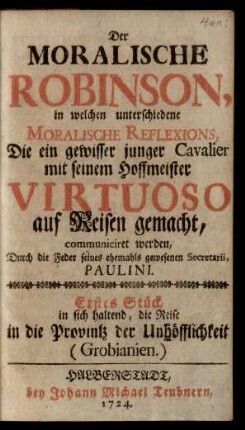 Der
MORALISCHE
ROBINSON,
in welchen unterschiedene
MORALISCHE REFLEXIONS,
Die ein gewisser junger Cavalier
mit seinem Hoffmeister
VIRTUOSO
auf Reisen gemacht,
communiciret werden,
Durch die Feder seines ehemahls gewesenen Secretarii,
PAULINI.
Erstes Stück
in sich haltend, die Reise
in die Provintz der Unhöfflichkeit
(Grobianien.)
HALBERSTADT,
bey Johann Michael Teubnern,
1724.